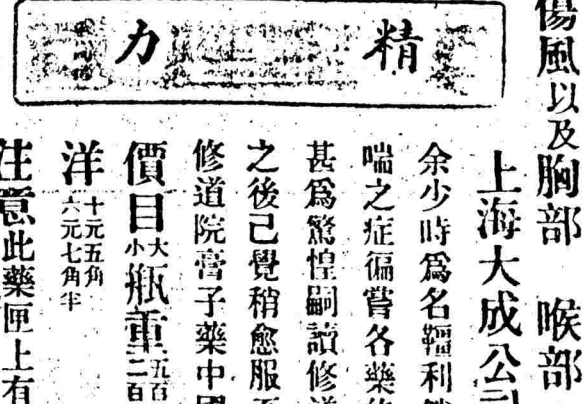 精力
傷風以及胸部 喉部
上海大成公司
余少時爲名韁利
喘之症徧嘗各藥
甚爲驚惶嗣讀修道
之後已覺稍愈服
修道院膏子藥中國
價目大小瓶重五百二百
洋十元五角六元七角半
注意此藥匣上有